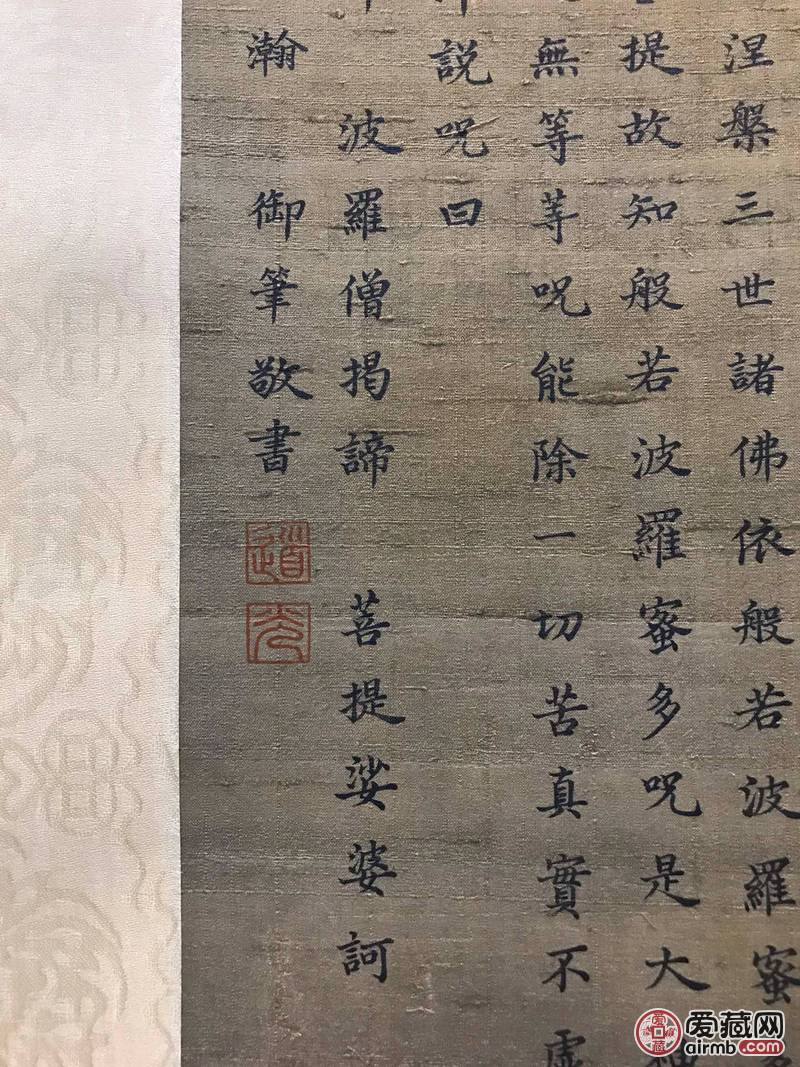 涅槃三世諸佛依般若波羅蜜多
提故知般若波羅蜜多呪是大神
無等等呪能除一切苦真實不虛
説呪曰
波羅僧揭諦 菩提娑婆訶
瀚 御筆敬書
道
光
爱藏网
airmb.com